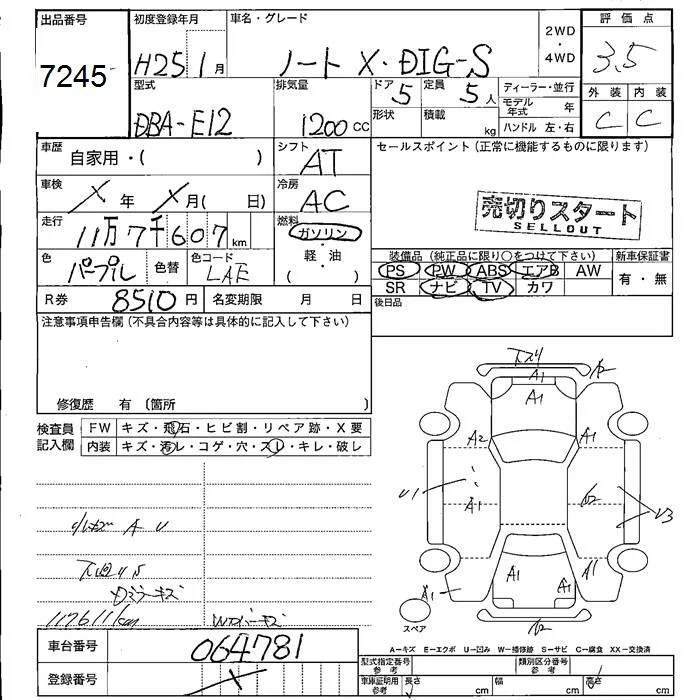 出品番号 7245
初度登録年月 H25 1月
車名・グレード ノート X・DIG-S
2WD・4WD
評価点 3.5
外装 C 内装 C
型式 DBA-E12
排気量 1200cc
ドア 5
定員 5人
形状
積載 kg
ディーラー・並行
モデル年式 年
ハンドル 左・右
車歴 自家用・( )
シフト AT
セールスポイント(正常に機能するものに限ります)
車検 X年 X月( 日)
冷房 AC
売切りスタート
SELLOUT
走行 11万7千607km
燃料 ガソリン・軽油( )
色 パープル 色替
色コード LAE
装備品(純正品に限り○をつけて下さい) 新車保証書
PS PW ABS エアB AW 有・無
SR ナビ TV カワ
R券 8510円
名変期限 月 日
後日品
注意事項申告欄(不具合内容等は具体的に記入して下さい)
修復歴 有(箇所 )
検査員記入欄
FW キズ・飛石・ヒビ割・リペア跡・X要
内装 キズ・汚レ・コゲ・穴・スレ・キレ・破レ
A1
A1
A2 A1
U1 A1
U3
A1
A1 A1
A1
スペア
A U
117611km
A-キズ E-エクボ U-凹み W-補修跡 S-サビ C-腐食 XX-交換済
車台番号 064781
登録番号 X
型式指定番号 参考
類別区分番号 参考
車庫証明用 参考 長さ cm 幅 cm 高さ cm